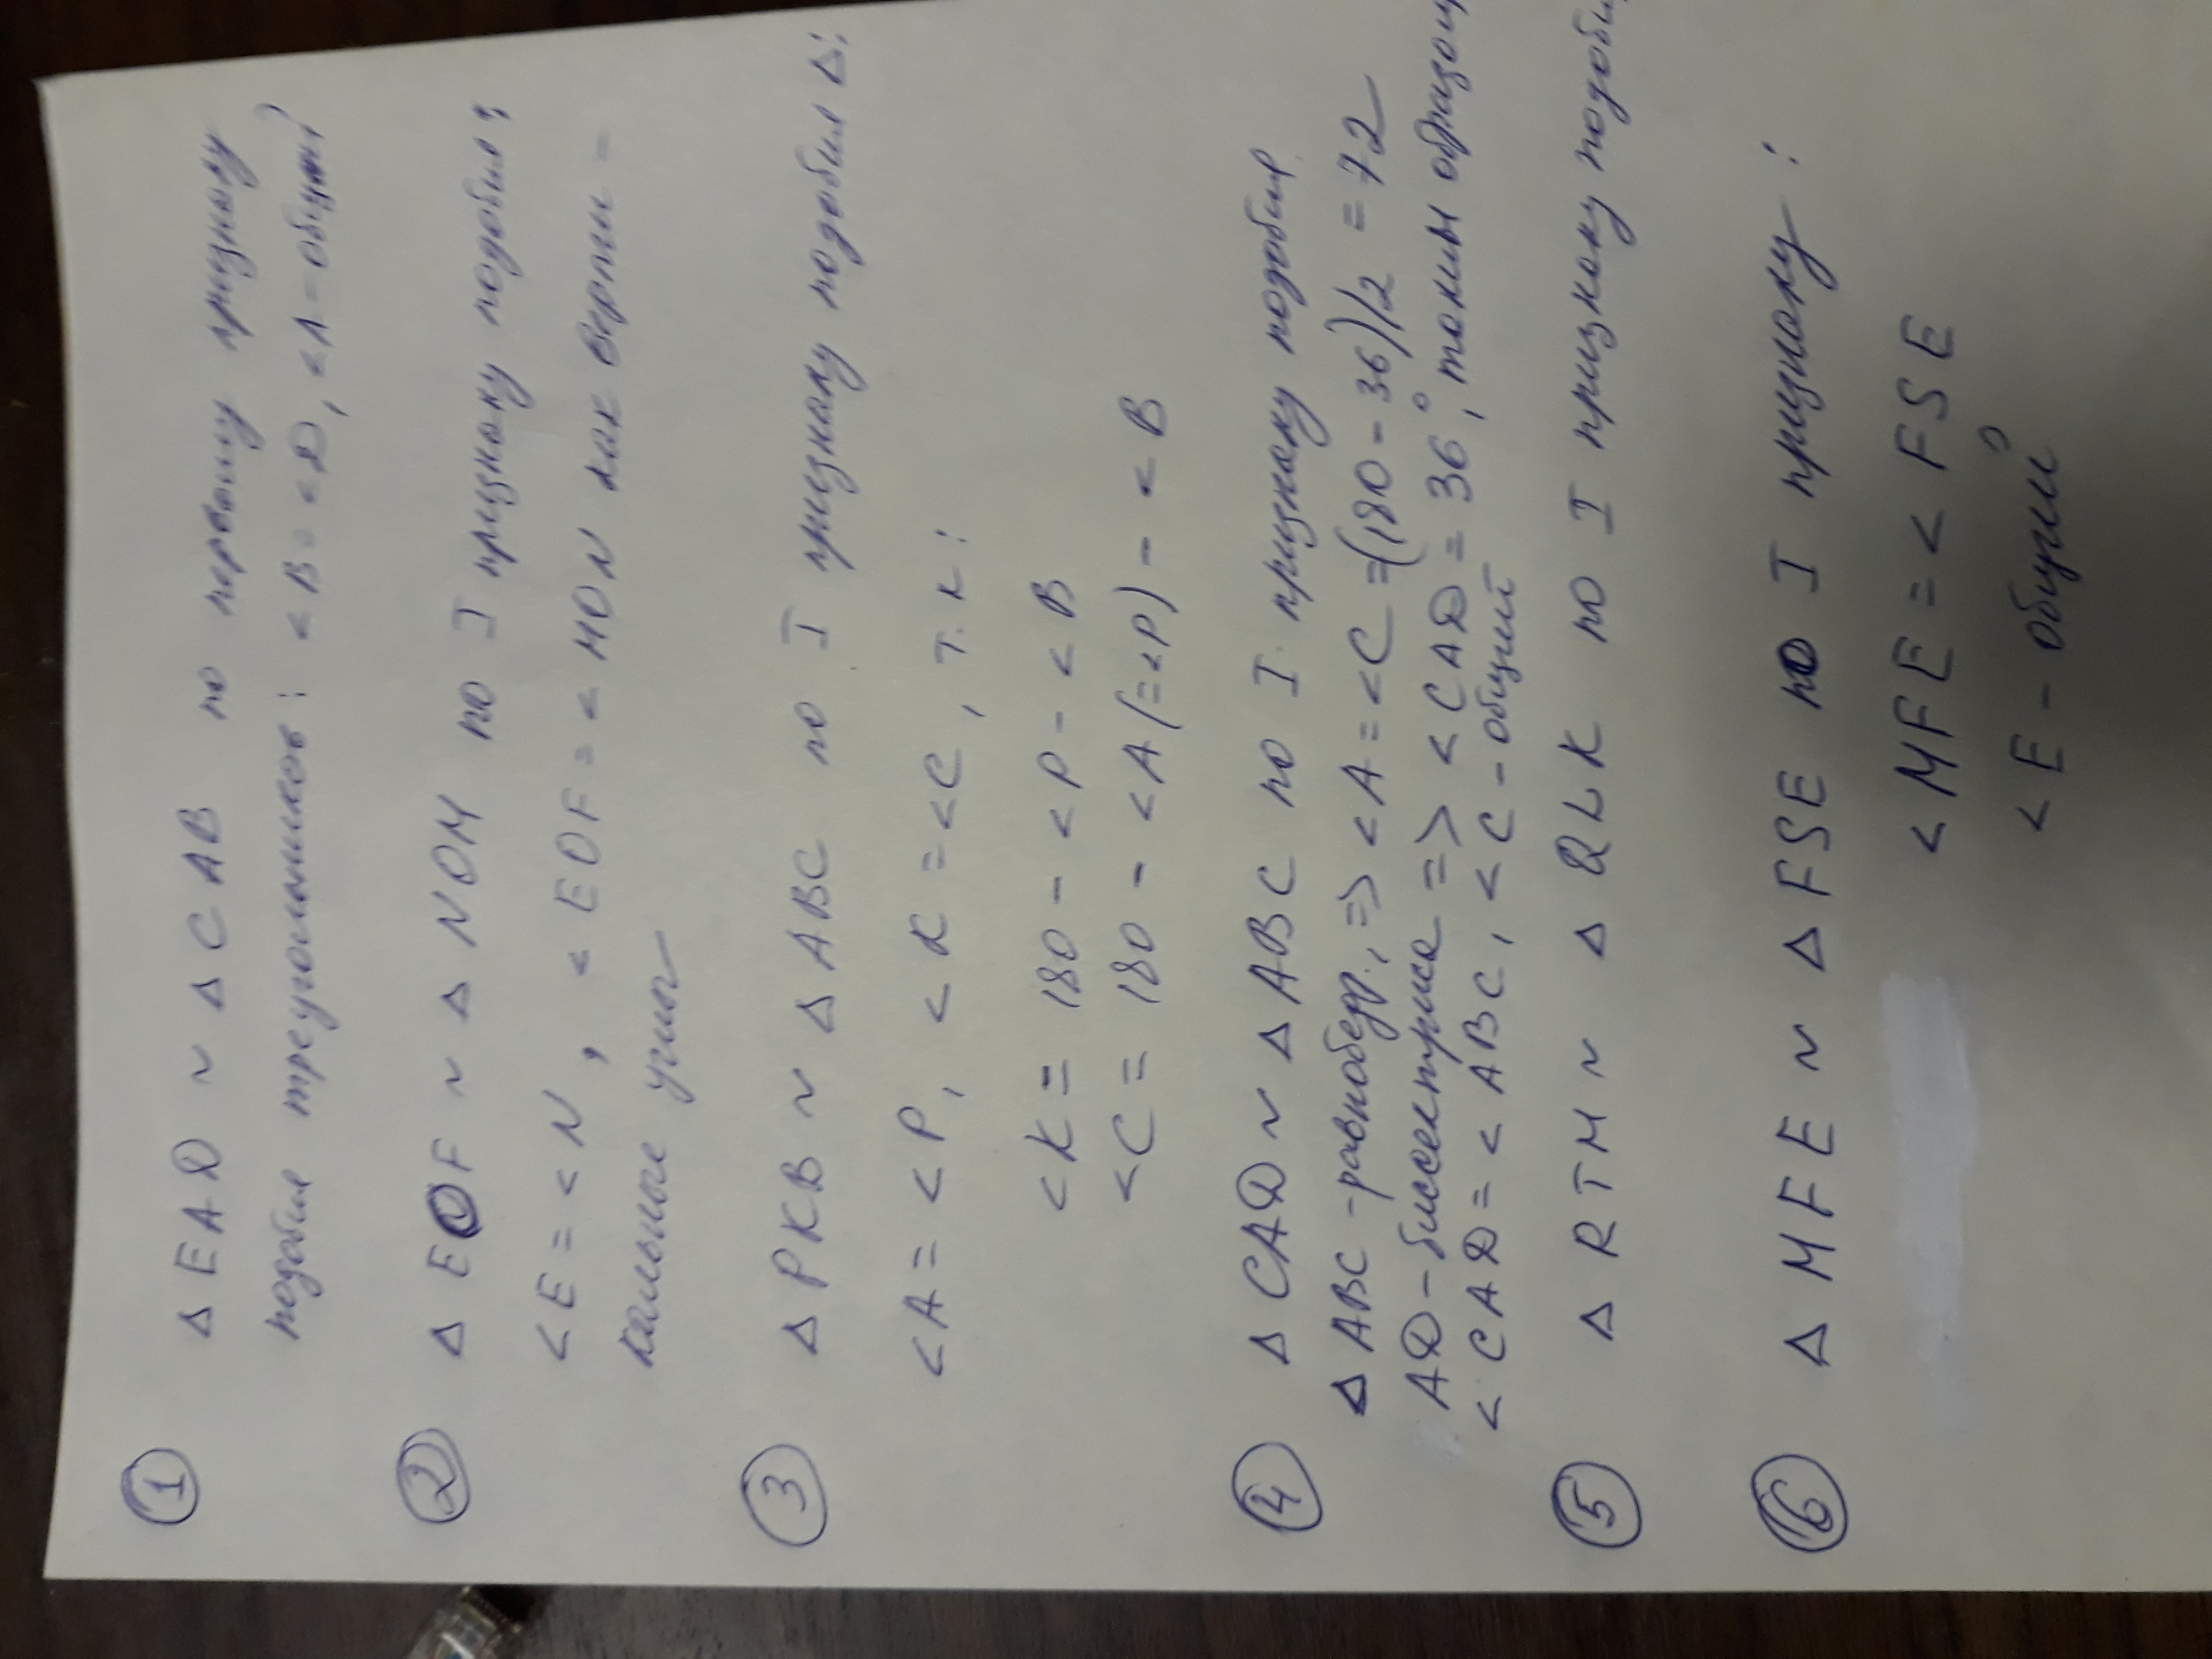 ① Δ EAD ~ Δ CAB по первому признаку
подобия треугольников: <B = <D, <A - общий
② Δ EOF ~ Δ NOM по I признаку подобия:
<E = <N, <EOF = <MON как верти-
кальные углы
③ Δ PKB ~ Δ ABC по I признаку подобия Δ:
<A = <P, <K = <C, т.к:
<K = 180 - <P - <B
<C = 180 - <A (=<P) - <B
④ Δ CAD ~ Δ ABC по I признаку подобия
Δ ABC - равнобедр., => <A = <C = (180 - 36)/2 = 72
AD - биссектриса => <CAD = 36°, таким образом
<CAD = <ABC, <C - общий
⑤ Δ RTM ~ Δ QLK по I признаку
⑥ Δ MFE ~ Δ FSE по I признаку:
<MFE = <FSE
<E - общий